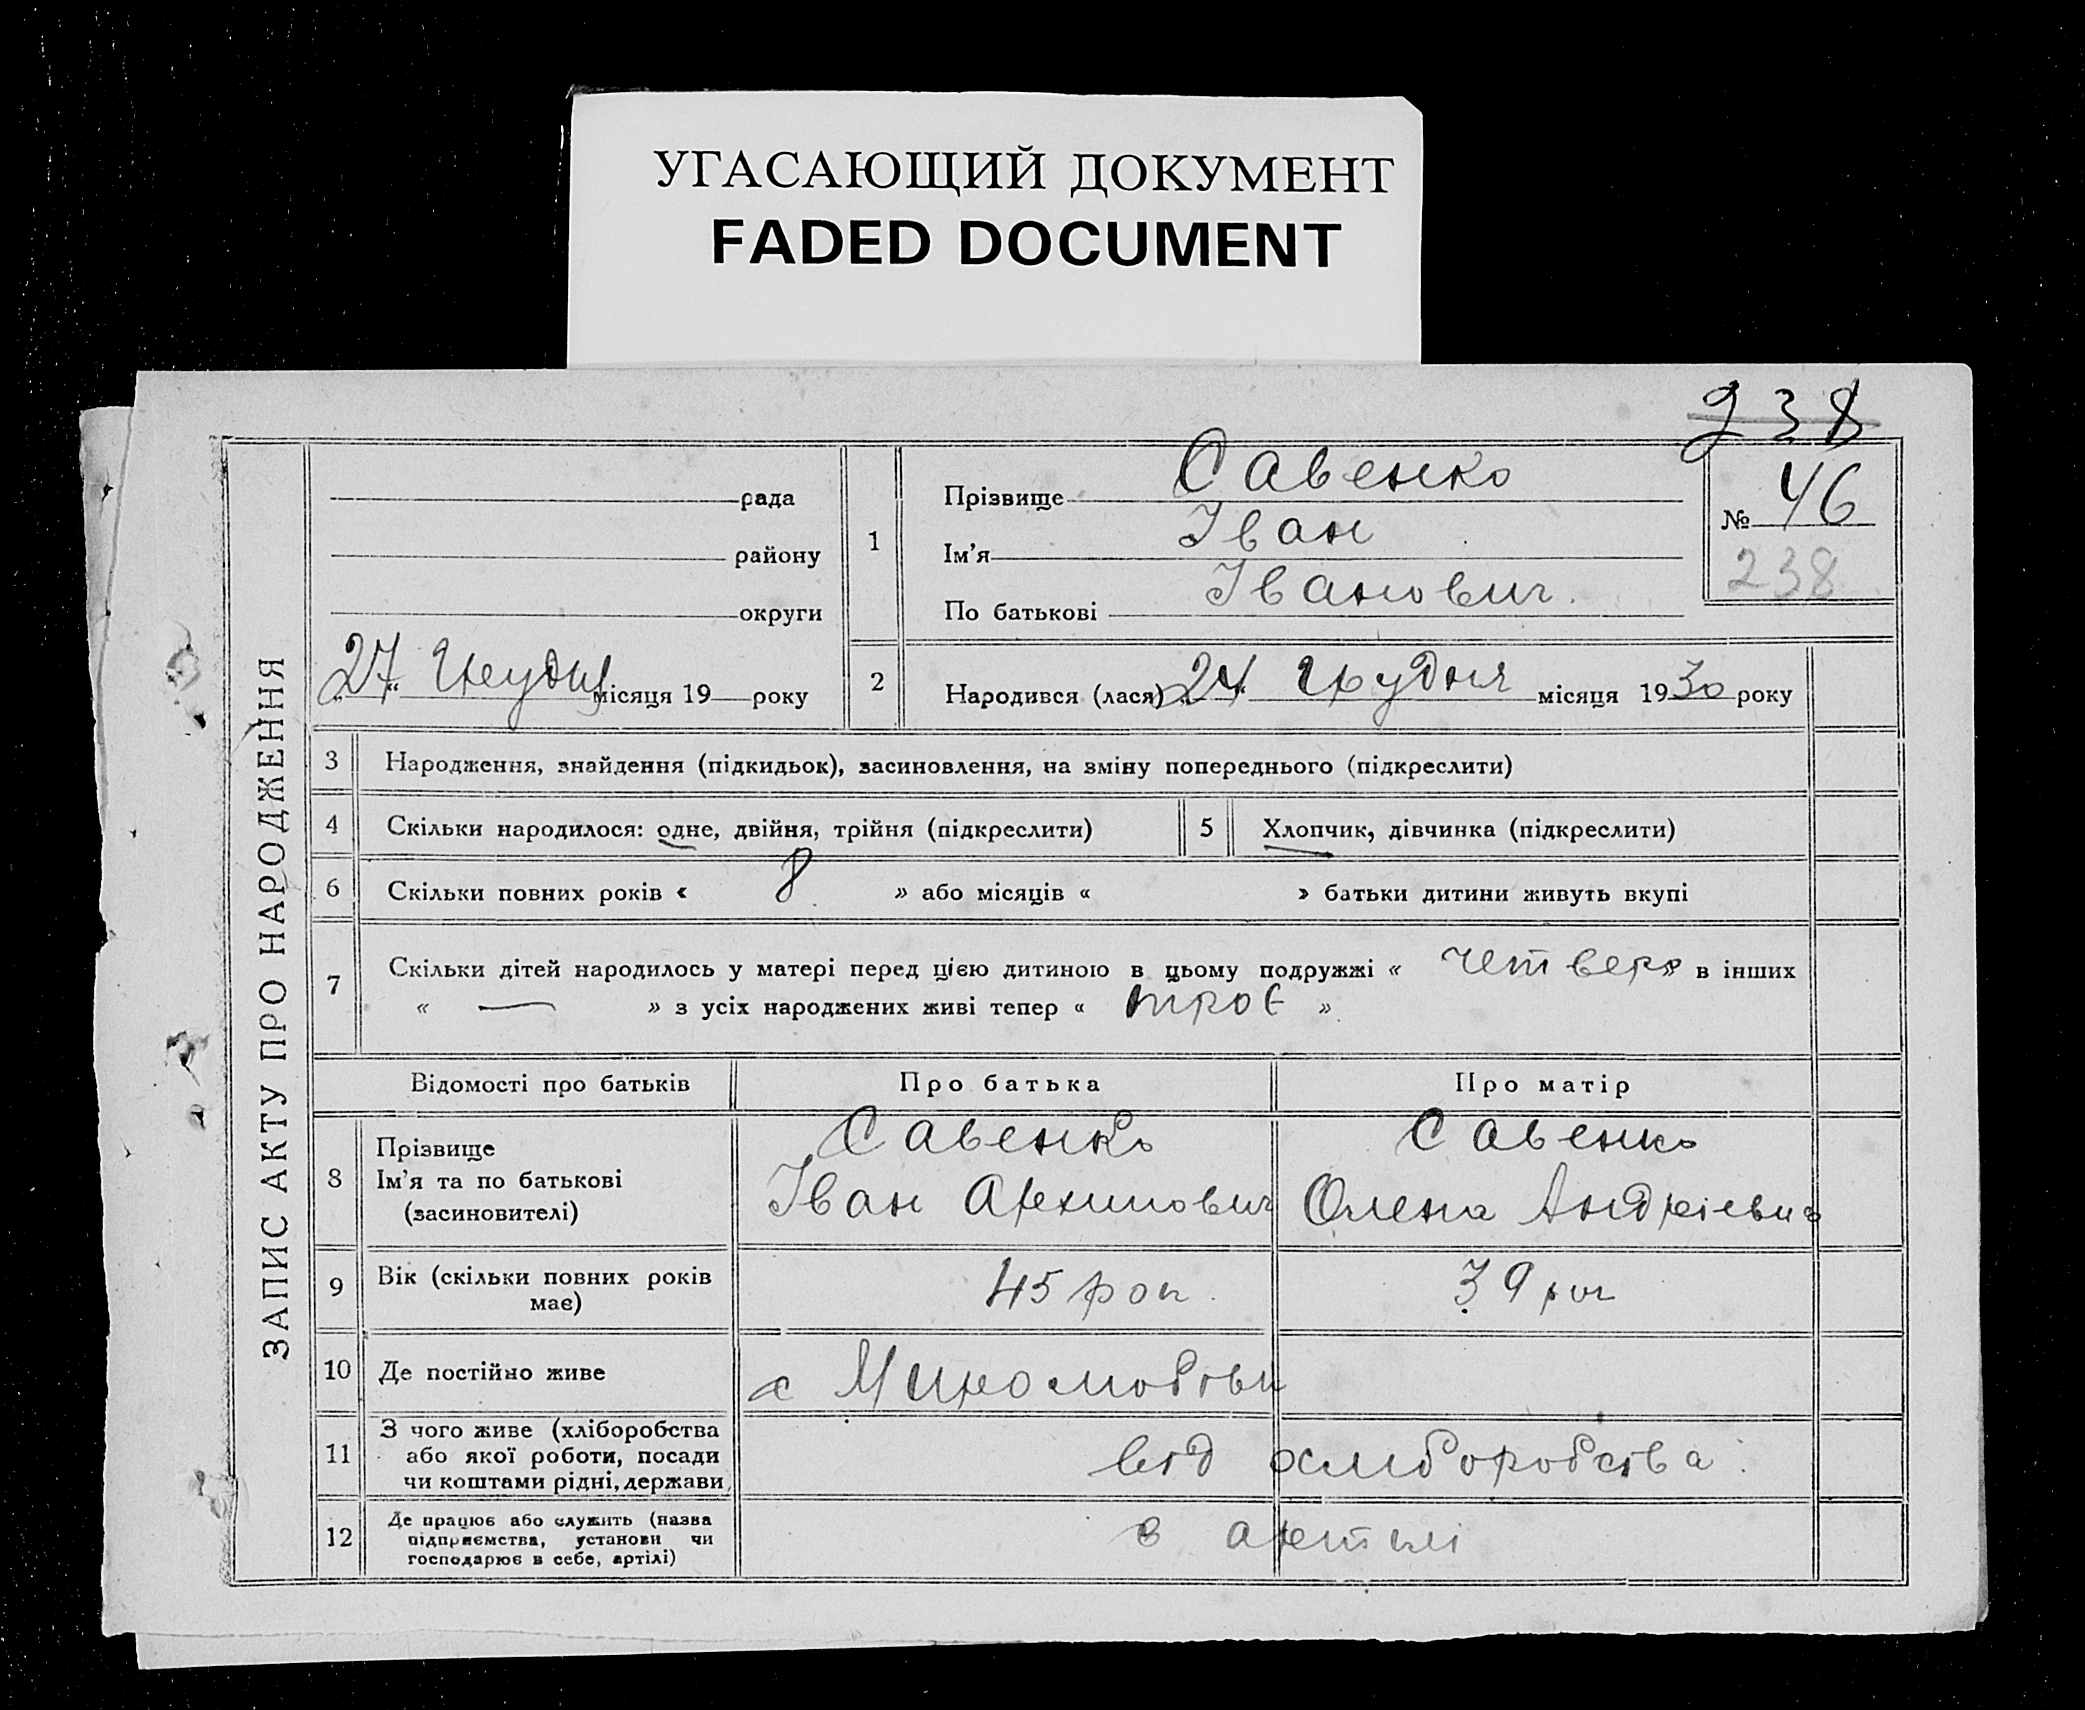 УГАСАЮЩИЙ ДОКУМЕНТ
FADED DOCUMENT
238
ЗАПИС АКТУ ПРО НАРОДЖЕННЯ
рада
району
округи
27 Грудня місяця 19 року
1
Прізвище Савенко
Ім'я Іван
По батькові Іванович.
№ 46
238
2
Народився (лася) 24 Грудня місяця 1930 року
3 Народження, знайдення (підкидьок), засиновлення, на зміну попереднього (підкреслити)
4 Скільки народилося: одне, двійня, трійня (підкреслити) 5 Хлопчик, дівчинка (підкреслити)
6 Скільки повних років « 8 » або місяців « » батьки дитини живуть вкупі
7 Скільки дітей народилось у матері перед цією дитиною в цьому подружжі « четверо » в інших
« — » з усіх народжених живі тепер « троє »
Відомості про батьків Про батька Про матір
8 Прізвище Савенко Савенко
Ім'я та по батькові Іван Архипович Олена Андріевна
(засиновителі)
9 Вік (скільки повних років має) 45 рок. 39 рок
10 Де постійно живе с
11 З чого живе (хліборобства
або якої роботи, посади
чи коштами рідні, держави від хліборобства
12 Де працює або служить (назва
підприємства, установи чи
господарює в себе, артілі) в артілі